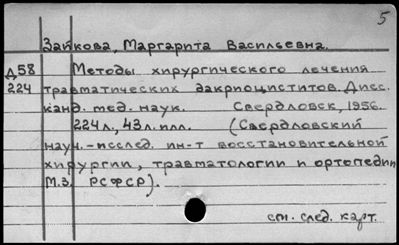 5
Зайкова, Маргарита Васильевна.
Д58 Методы хирургического лечения
224 травматических дакриоциститов. Дисс.
канд. мед. наук. Свердловск, 1956.
224л., 43л. илл. (Свердловский
науч.-исслед. ин-т восстановительной
хирургии, травматологии и ортопедии
М.З. РСФСР).
см. след. карт.